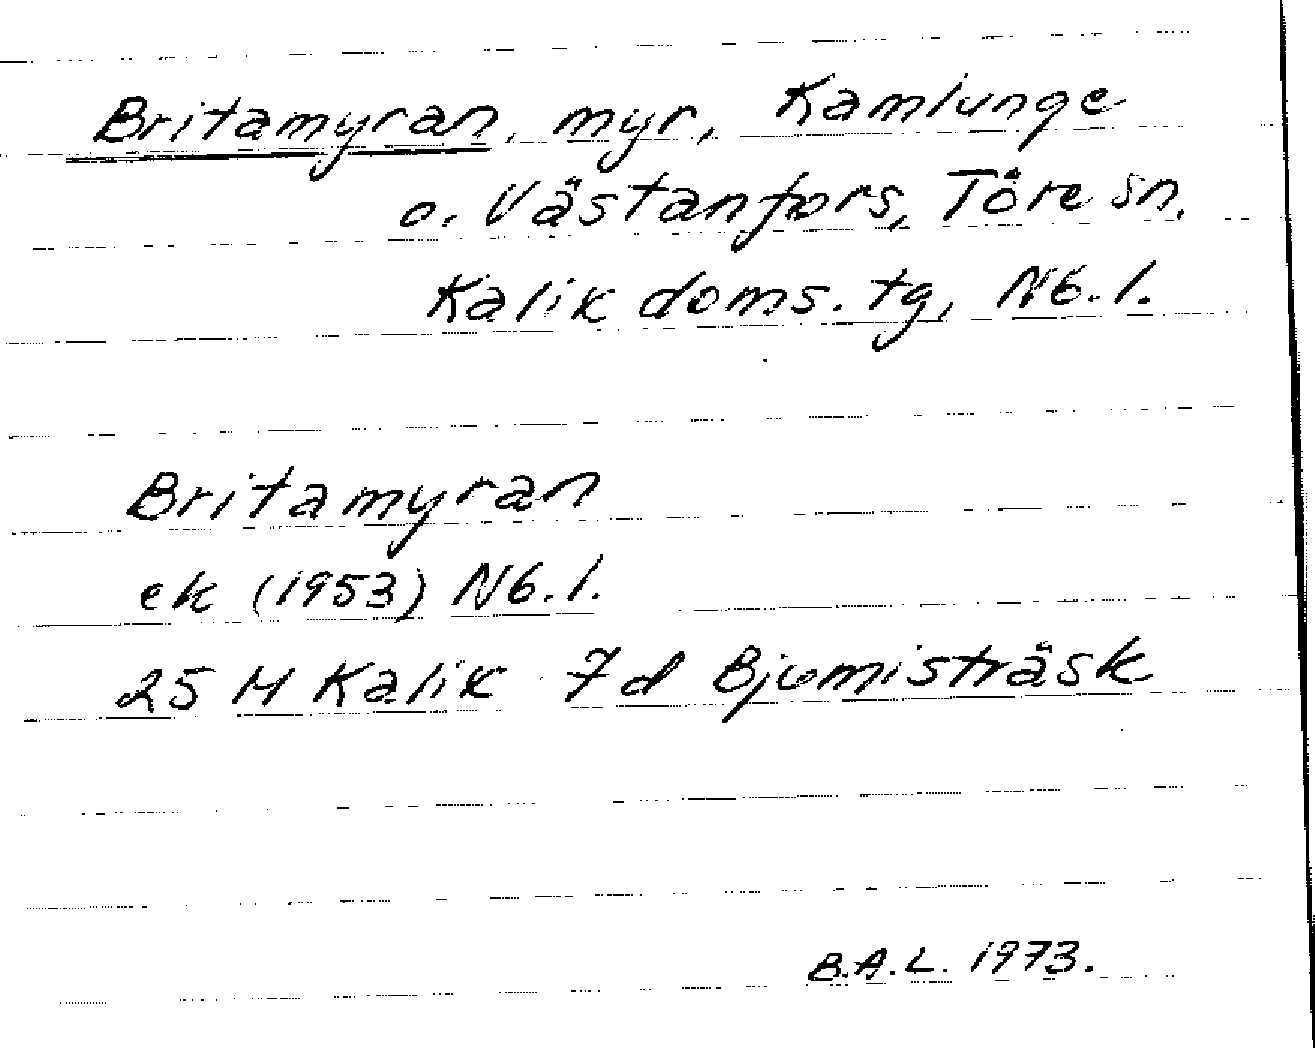 Britamyran, myr, Kamlunge
o. Västanfors, Töre sn.
Kalix doms. tg, Nb. l.
Britamyran
ek (1953) Nb. l.
25 M Kalix 7d Bjumisträsk
B.A.L. 1973.